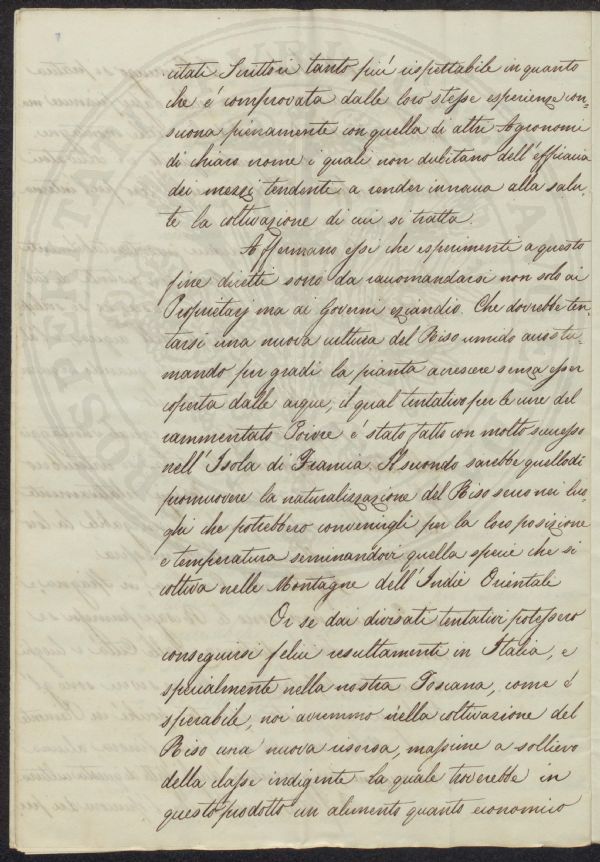 citati Scrittori tanto piu' rispettabile in quanto
che é comprovata dalle loro stesse esperienze con-
suona pienamente con quella di altri Agronomi
di chiaro nome i quali non dubitano dell'efficacia
dei mezzi tendente a render innocua alla salu-
te la coltivazione di cui si tratta.
Affermano essi che esperimenti a questo
fine diretti sono da raccomandarsi non solo ai
Proprietarj ma ai Governi eziandio. Che dovrebbe ten-
tarsi una nuova cultura del Riso umido accostu-
mando per gradi la pianta a crescere senza esser
coperta dalle acque; il qual tentativo per le cure del
rammentato Poivre é stato fatto con molto successo
nell'Isola di Francia. Il secondo sarebbe quello di
promuovere la naturalizzazione del Riso secco nei luo-
ghi che potrebbero convenirgli per la loro posizione
e temperatura seminandovi quella specie che si
coltiva nelle Montagne dell'Indie Orientali
Or se dai divisati tentativi potessero
conseguirsi felici resultamente in Italia, e
specialmente nella nostra Toscana, come é
sperabile, noi avremmo nella coltivazione del
Riso una nuova risorsa, massime a sollievo
della classe indigente la quale troverebbe in
questo prodotto un alimento quanto economico